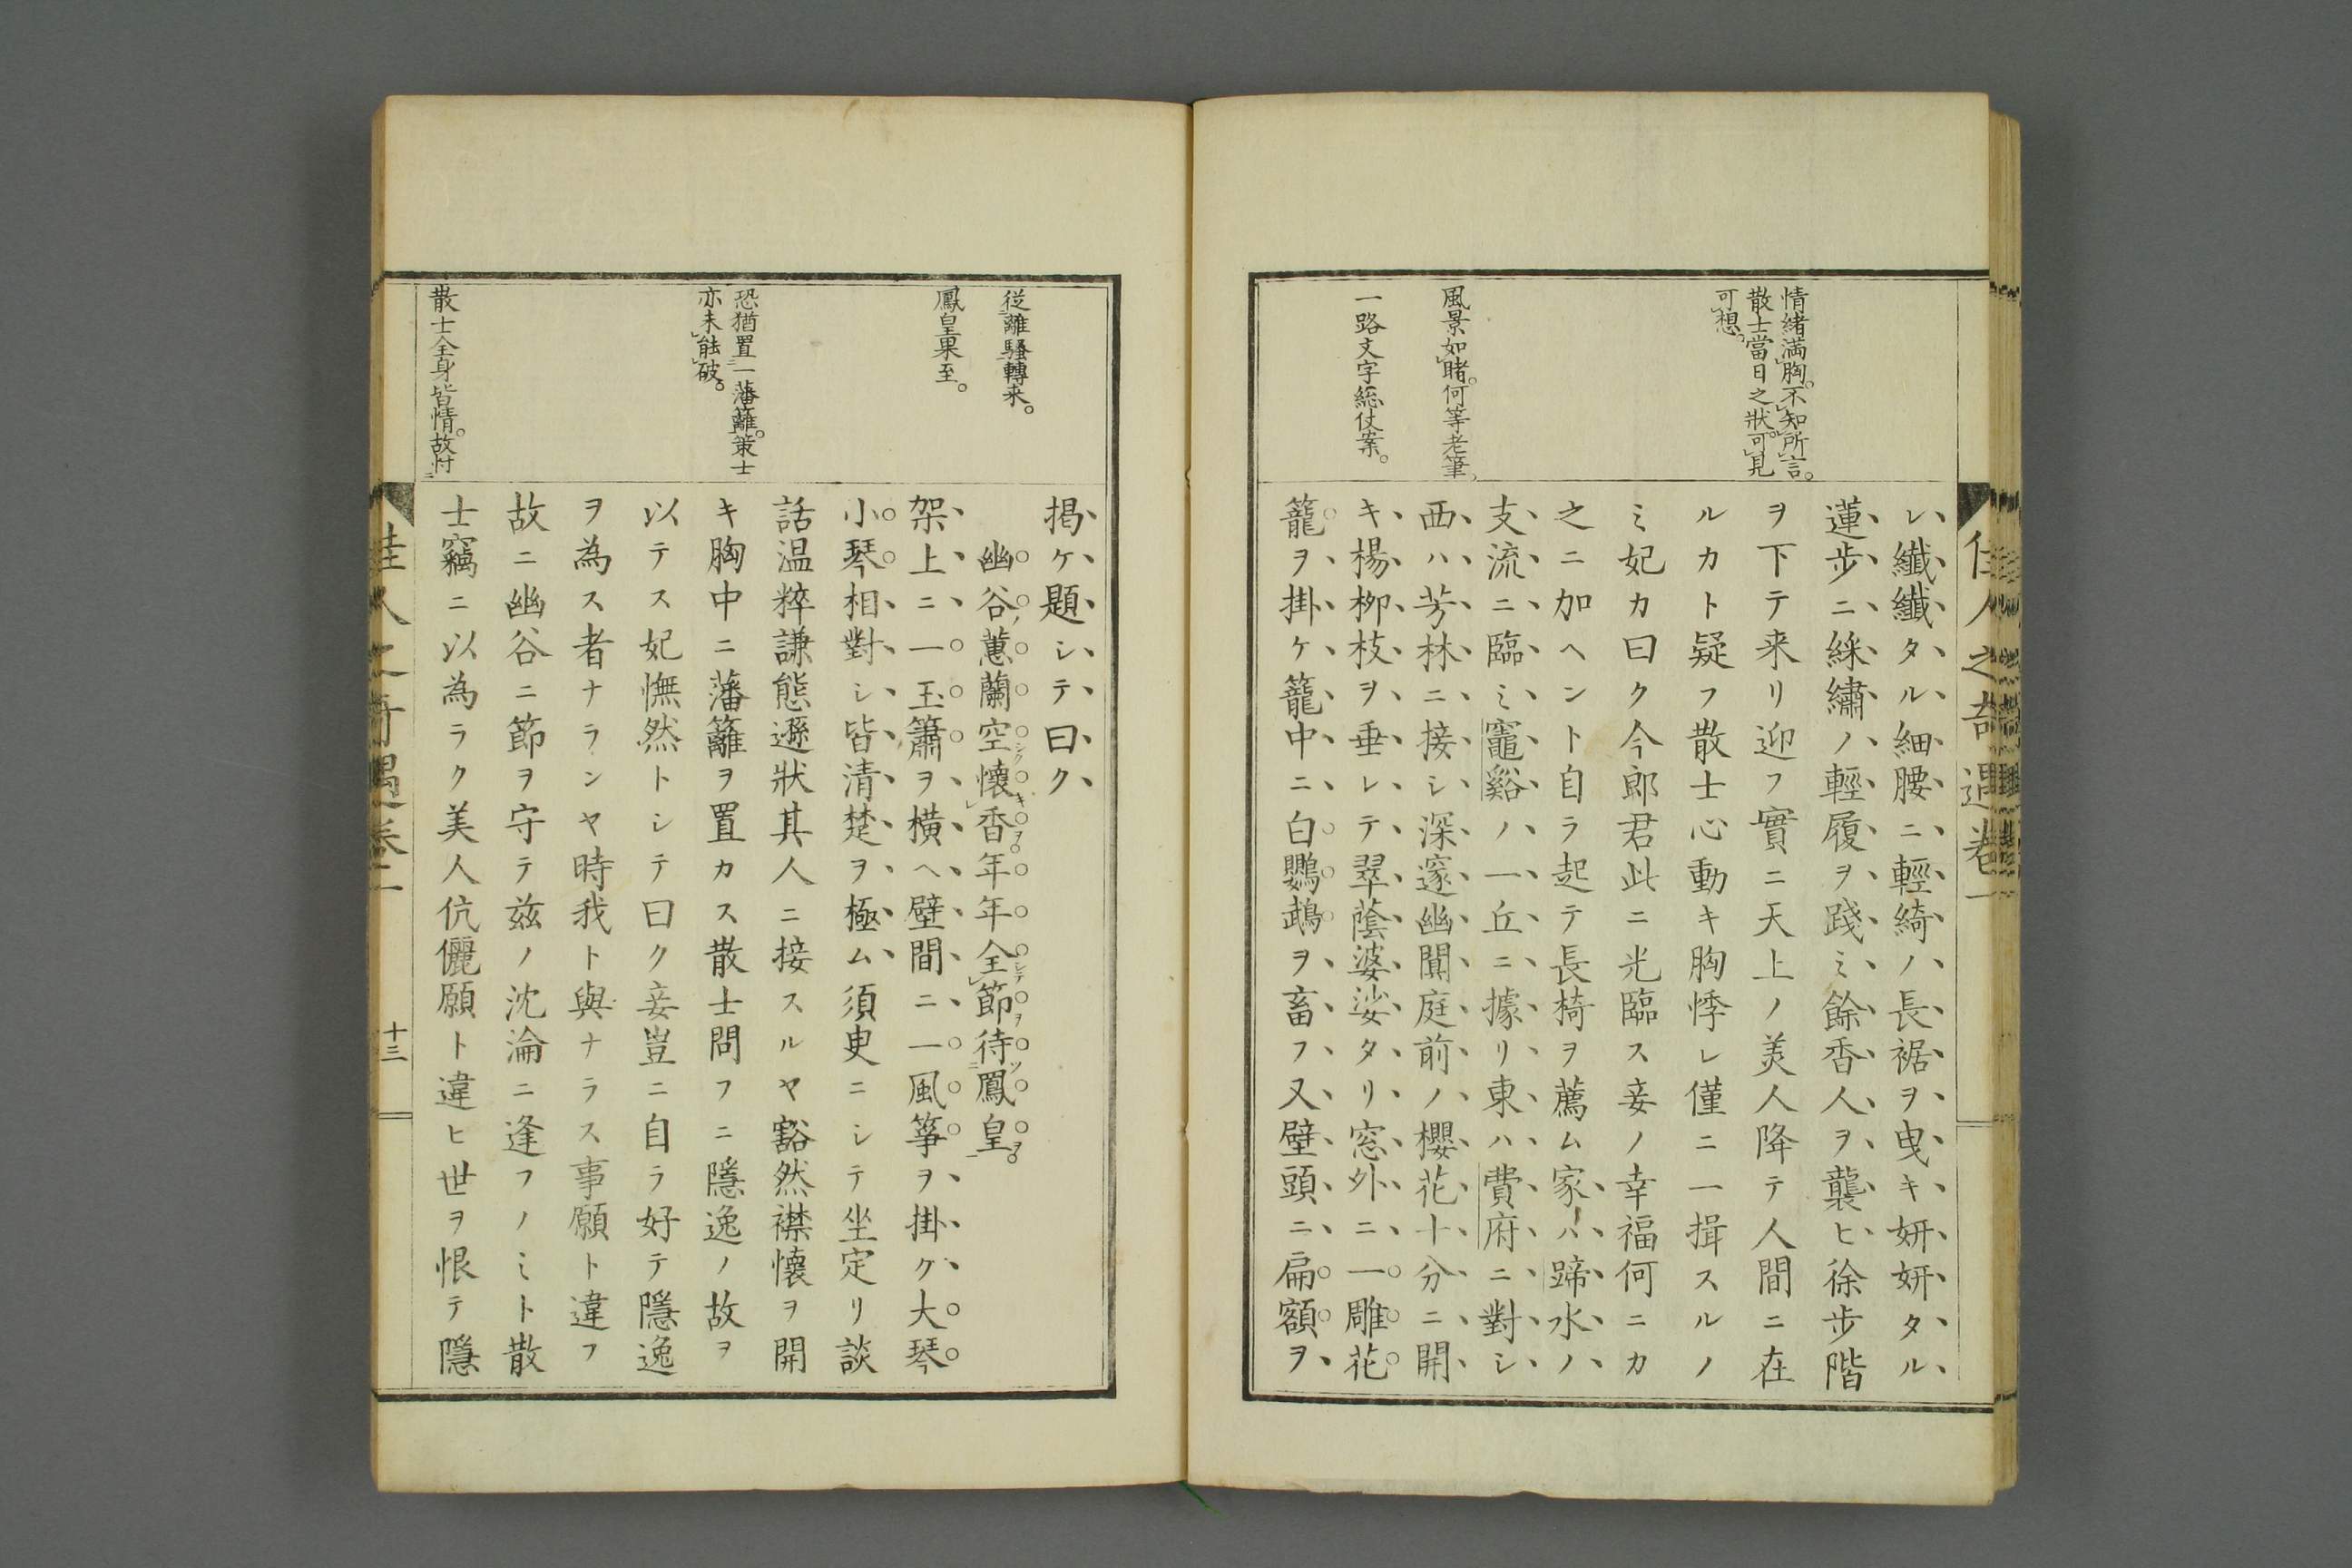 佳人之奇遇卷一
情緒満胸。不知所言。
散士當日之狀。可見
可想。
風景如睹。何等老筆。
一路文字総仗案。
レ纎纎タル細腰ニ輕綺ノ長裾ヲ曳キ妍妍タル
蓮步ニ綵繡ノ輕履ヲ踐ミ餘香人ヲ襲ヒ徐步階
ヲ下テ来リ迎フ實ニ天上ノ美人降テ人間ニ在
ルカト疑フ散士心動キ胸悸レ僅ニ一揖スルノ
ミ妃カ曰ク今郎君此ニ光臨ス妾ノ幸福何ニカ
之ニ加ヘント自ラ起テ長椅ヲ薦ム家ハ蹄水ノ
支流ニ臨ミ竈谿ノ一丘ニ據リ東ハ費府ニ對シ
西ハ芳林ニ接シ深邃幽閴庭前ノ櫻花十分ニ開
キ楊柳枝ヲ垂レテ翠蔭婆娑タリ窓外ニ一雕花
籠ヲ掛ケ籠中ニ白鸚鵡ヲ畜フ又壁頭ニ扁額ヲ
従離騷轉来。
鳳皇果至。
恐猶置一藩籬。策士
亦未能破。
散士全身皆情。故忖
掲ケ題シテ曰ク
幽谷ノ蕙蘭空シク懷キ香ヲ。年年全シテ節ヲ待ツ鳳皇ヲ。
架上ニ一玉簫ヲ横ヘ壁間ニ一風箏ヲ掛ケ大琴
小琴相對シ皆清楚ヲ極ム須臾ニシテ坐定リ談
話温粹謙態遜狀其人ニ接スルヤ豁然襟懷ヲ開
キ胸中ニ藩籬ヲ置カス散士問フニ隱逸ノ故ヲ
以テス妃憮然トシテ曰ク妾豈ニ自ラ好テ隱逸
ヲ為ス者ナランヤ時我ト與ナラス事願ト違フ
故ニ幽谷ニ節ヲ守テ茲ノ沈淪ニ逢フノミト散
士竊ニ以為ラク美人伉儷願ト違ヒ世ヲ恨テ隱
佳人之奇遇卷一
十三